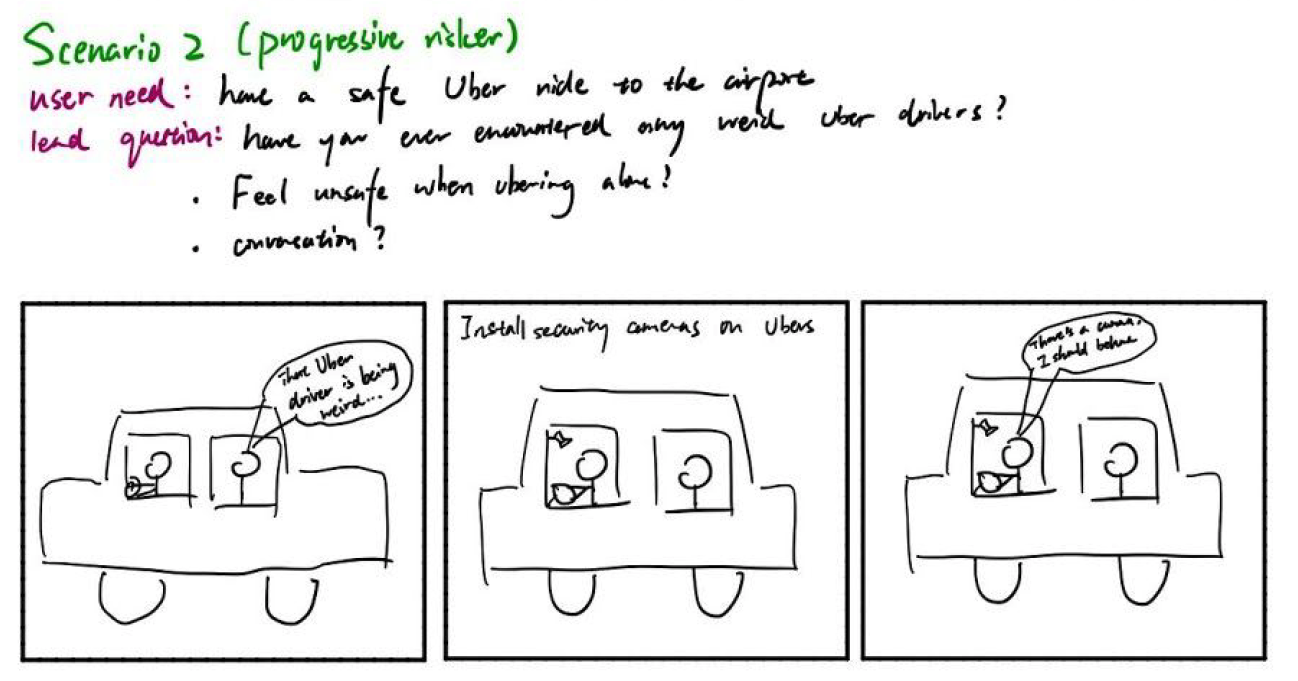 Scenario 2 (progressive risker)
user need: have a safe Uber ride to the airport
lead question: have you ever encountered any weird Uber drivers?
. Feel unsafe when ubering alone?
. conversation?
This Uber
driver is being
weird...
Install security cameras on Ubers
There's a camera,
I should behave